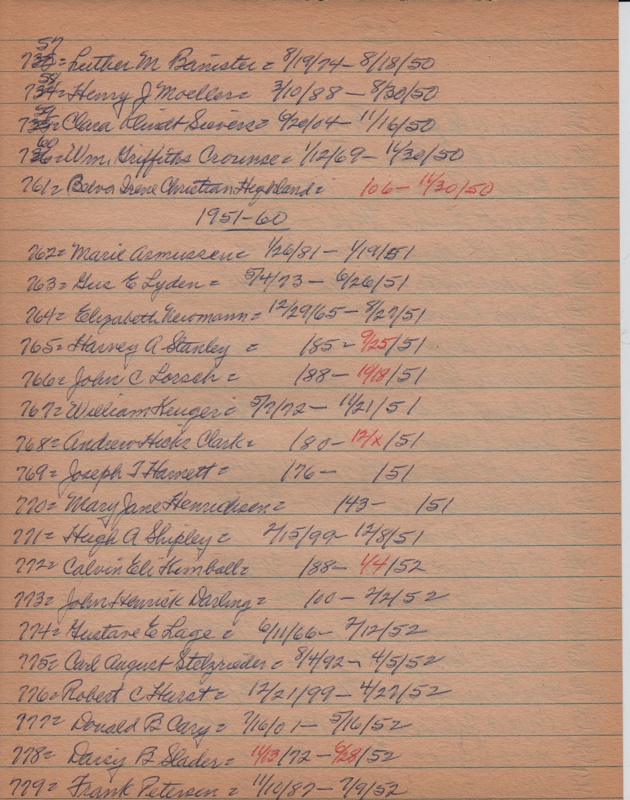 757= Luther M Banister = 8/19/74 - 8/18/50
758= Henry J Moeller = 3/10/88 - 8/30/50
759= Clara Klindt Sievers = 9/20/04 - 11/16/50
760= Wm. Griffiths Crounse = 1/12/69 - 11/30/50
761= Belva Irene Christian Highland = /06 - 11/30/50
1951-60
762= Marie Asmussen = 1/26/81 - 1/19/51
763= Gus E Lyden = 5/4/73 - 6/26/51
764= Elizabeth Newmann = 12/29/65 - 8/27/51
765= Harvey A Stanley = /85 - 9/25/51
766= John C Lorsch = /88 - /51
767= William Kruger = 5/7/72 - 11/21/51
768= Andrew Hicks Clark = /80 - 12/x/51
769= Joseph T Harnett = /76 - /51
770= Mary Jane Henrichsen = /43 - /51
771= Hugh A Shipley = 2/15/99 - 12/8/51
772= Calvin Eli Kimball = /88 - 1/4/52
773= John Henrick Darling = /00 - 2/2/52
774= Gustave E Lage = 6/11/66 - 2/12/52
775= Carl August Stelzrieder = 8/4/92 - 4/5/52
776= Robert C Hurst = 12/21/99 - 4/27/52
777= Donald B Cary = 7/16/01 - 5/16/52
778= Darcy B Slader = 11/13/72 - 9/28/52
779= Frank Petersen = 11/10/87 - 7/9/52